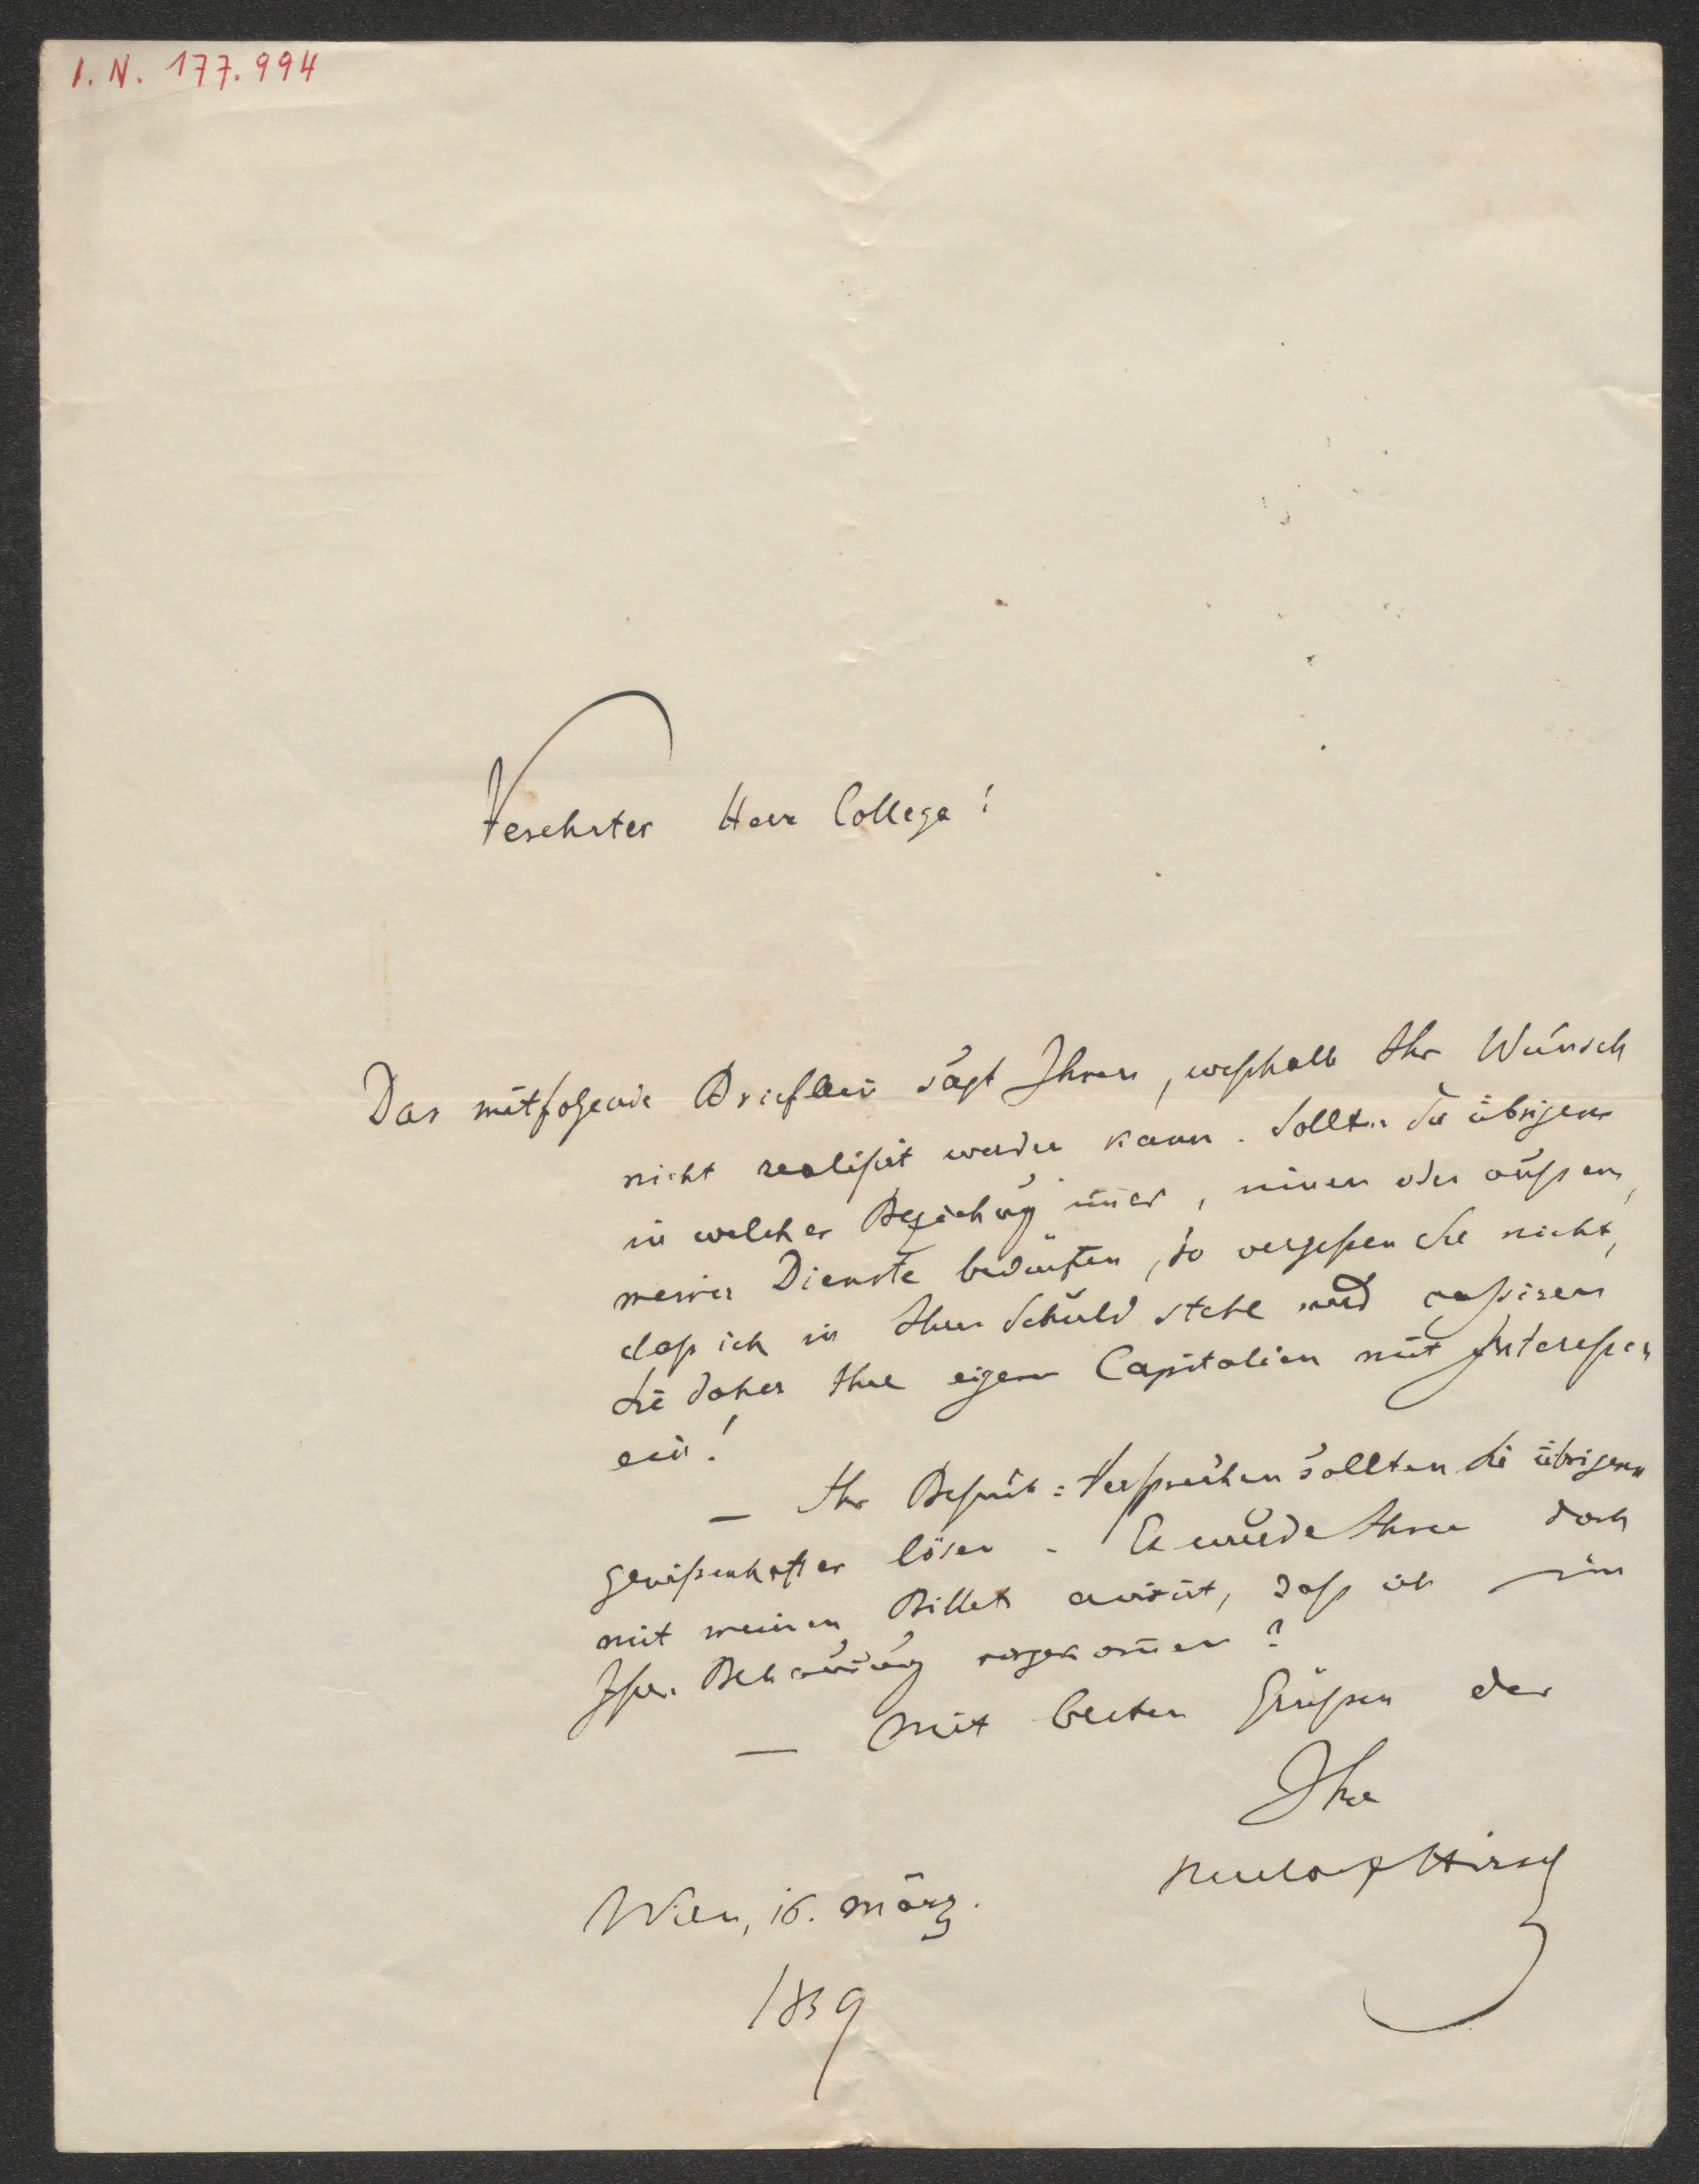 I. N. 177.994
Verehrter Herr Collega!
Das mitfolgende Brieflein sagt Ihnen, weßhalb Ihr Wunsch
nicht realisirt werden kann. Sollten Sie übrigens
in welcher Beziehung im̅er, innen oder außen,
meiner Dienste bedürfen, so vergeßen Sie nicht,
daß ich in Ihrer Schuld stehe und cassiren
Sie daher Ihre eigenen Capitalien mit Interessen
ein!
— Ihr Besuch=Versprechen sollten Sie übrigens
gewißenhafter lösen. Es wurde Ihnen doch
mit meinem Billet avisirt, daß ich in
Ihrer Behausung vorgekom̅en?
— Mit besten Grüßen der
Ihre
Rudolf Hirsch
Wien, 16. März.
1859